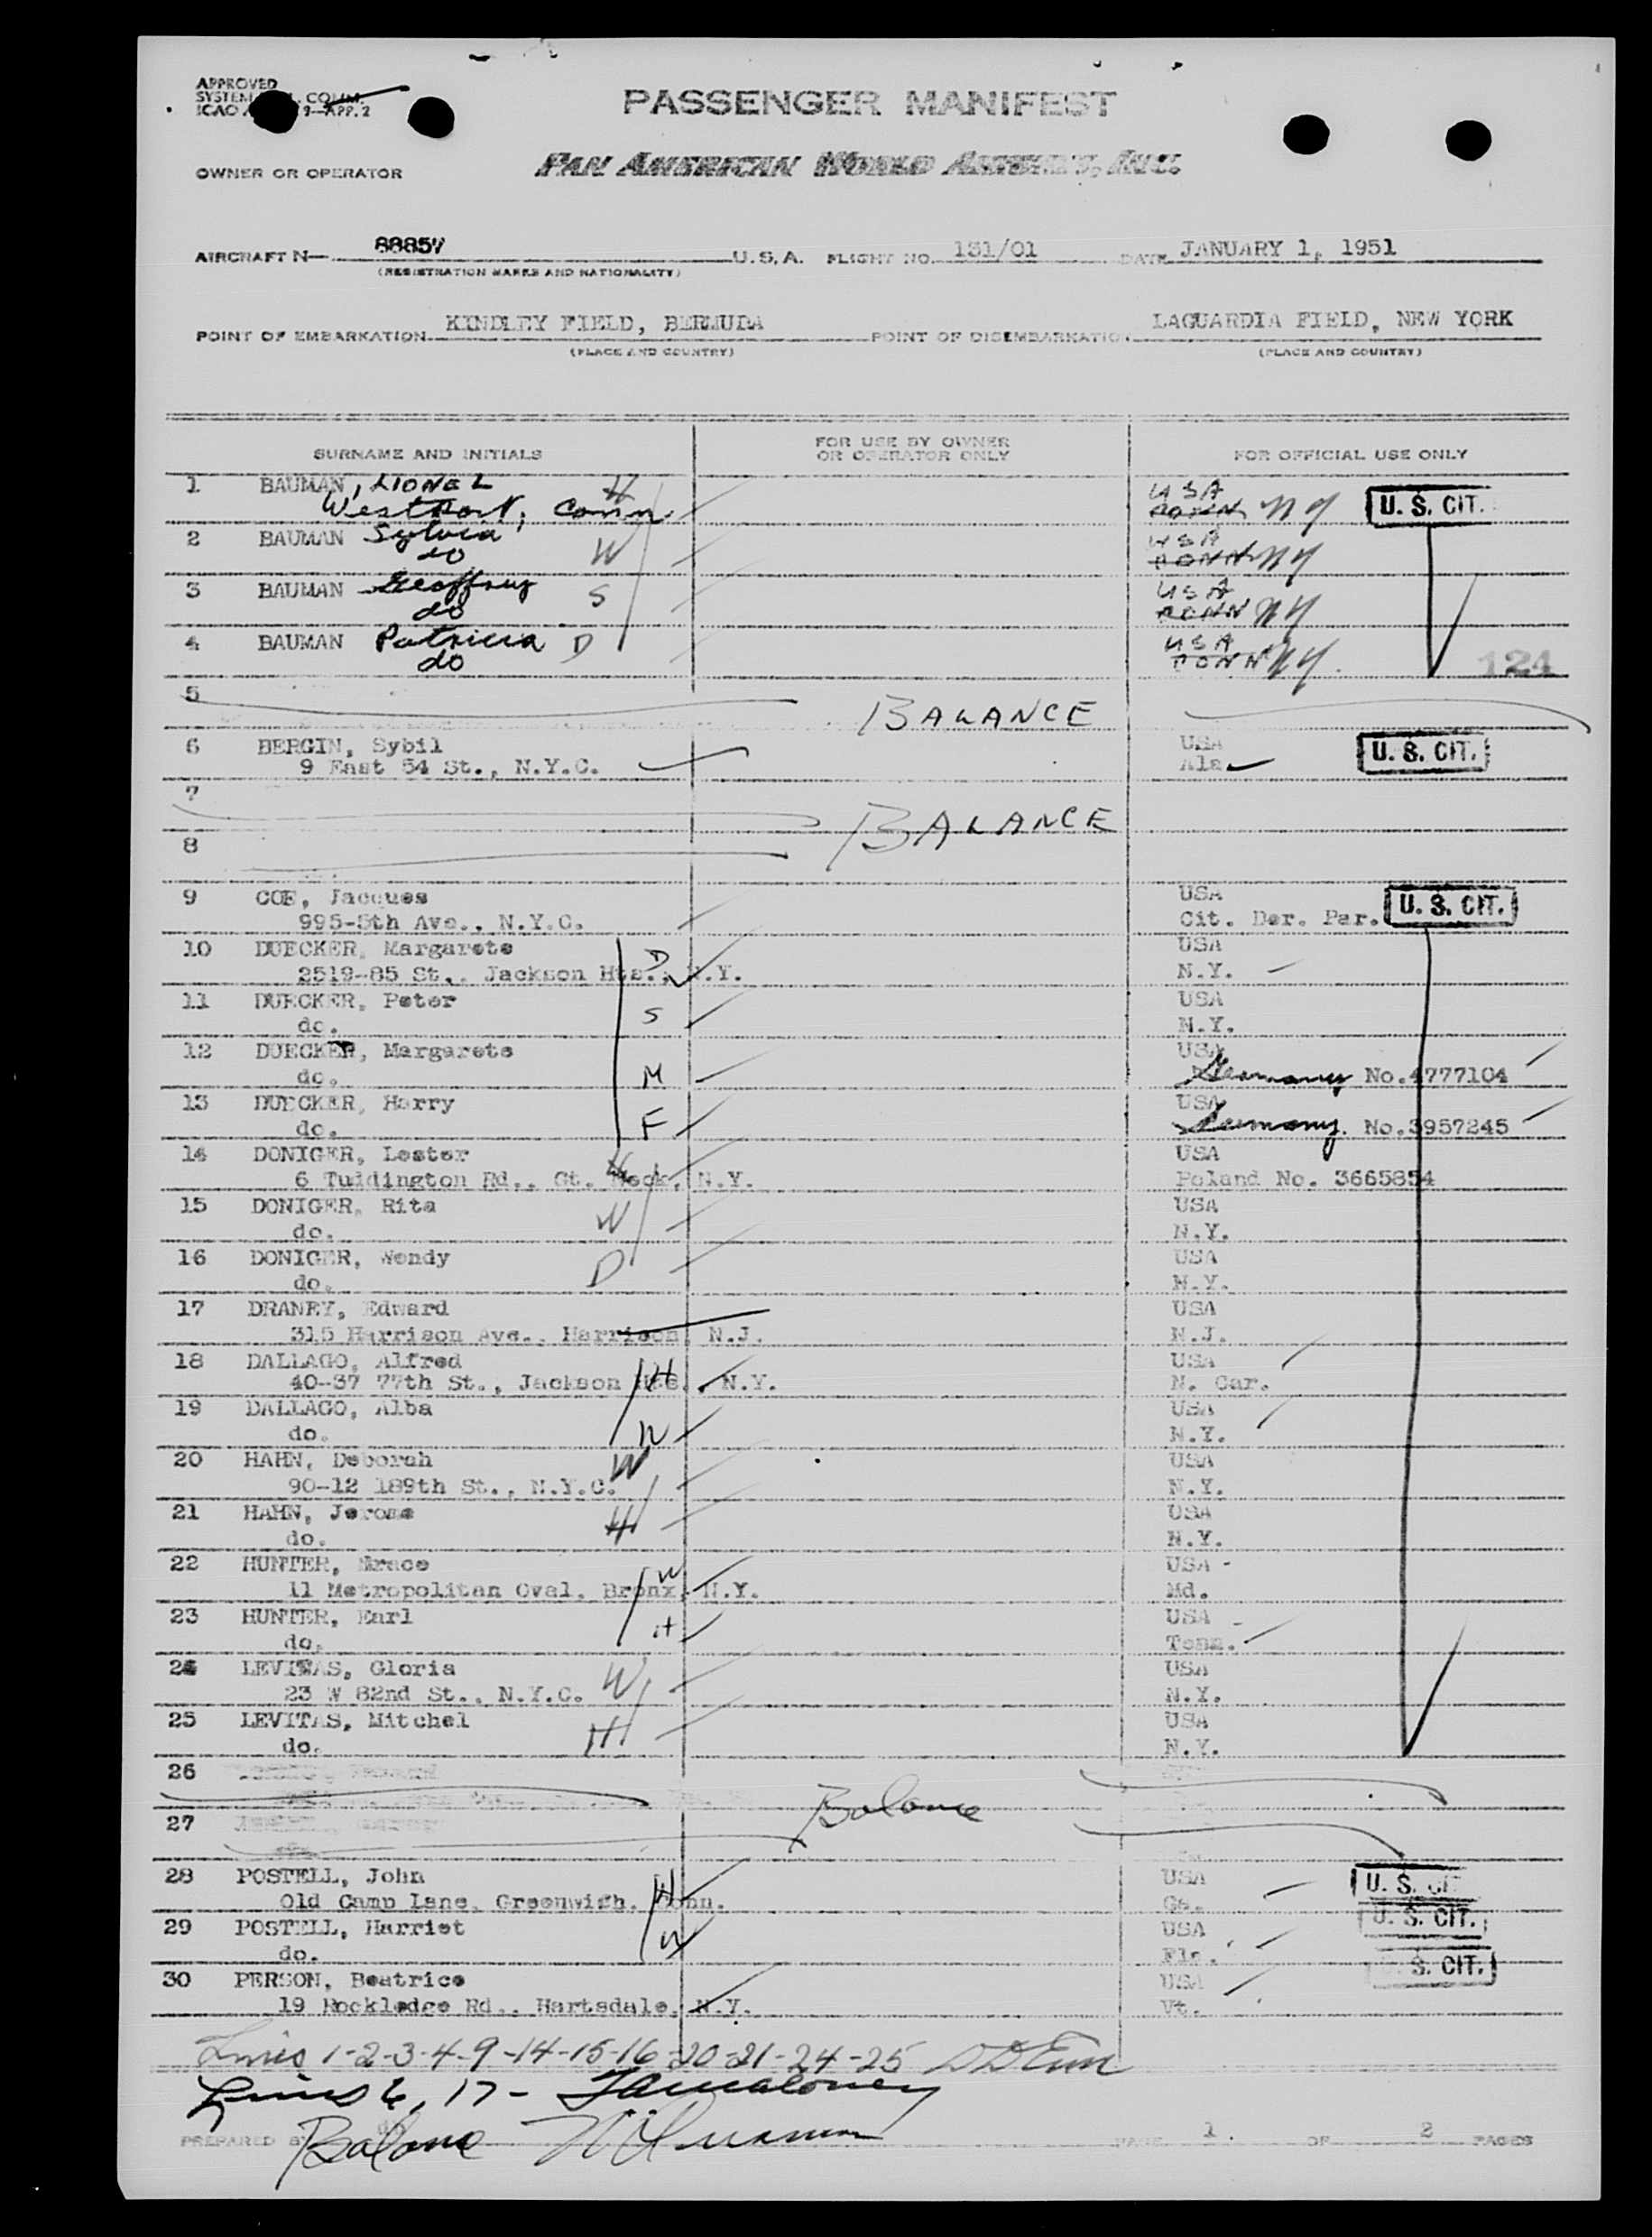 APPROVED
SYSTEM COMM.
ICAO 9-APP. 2
PASSENGER MANIFEST
OWNER OR OPERATOR PAN AMERICAN WORLD AIRWAYS, INC.
AIRCRAFT N- 88857 U.S.A. FLIGHT NO. 131/01 DATE JANUARY 1, 1951
(REGISTRATION MARKS AND NATIONALITY)
POINT OF EMBARKATION KINDLEY FIELD, BERMUDA POINT OF DISEMBARKATION LAGUARDIA FIELD, NEW YORK
(PLACE AND COUNTRY) (PLACE AND COUNTRY)
SURNAME AND INITIALS FOR USE BY OWNER OR OPERATOR ONLY FOR OFFICIAL USE ONLY
1 BAUMAN, LIONEL H USA U. S. CIT.
Westport, Conn. CONN NY
2 BAUMAN Sylvia W USA
do CONN NY
3 BAUMAN Geoffrey S USA
do CONN NY
4 BAUMAN Patricia D USA
do CONN NY 124
5 BALANCE
6 BERGIN, Sybil USA U. S. CIT.
9 East 54 St., N.Y.C. Ala.
7
8 BALANCE
9 COE, Jacques USA U. S. CIT.
995-5th Ave., N.Y.C. Cit. Der. Par.
10 DUECKER, Margarete D USA
2519-85 St., Jackson Hts., N.Y. N.Y.
11 DUECKER, Peter S USA
do. N.Y.
12 DUECKER, Margarete M USA
do. Germany No.4777104
13 DUECKER, Harry F USA
do. Germany. No.3957245
14 DONIGER, Lester H USA
6 Tuddington Rd., Gt. Neck, N.Y. Poland No. 3665854
15 DONIGER, Rita W USA
do. N.Y.
16 DONIGER, Wendy D USA
do. N.Y.
17 DRANEY, Edward USA
315 Harrison Ave., Harrison, N.J. N.J.
18 DALLAGO, Alfred H USA
40-37 77th St., Jackson Hts., N.Y. N. Car.
19 DALLAGO, Alba W USA
do. N.Y.
20 HAHN, Deborah W USA
90-12 189th St., N.Y.C. N.Y.
21 HAHN, Jerome H USA
do. N.Y.
22 HUNTER, Grace W USA
11 Metropolitan Oval, Bronx, N.Y. Md.
23 HUNTER, Earl H USA
do. Tenn.
24 LEVITAS, Gloria W USA
23 W 82nd St., N.Y.C. N.Y.
25 LEVITAS, Mitchel H USA
do. N.Y.
26
Balance
27
28 POSTELL, John H USA U. S. CIT.
Old Camp Lane, Greenwich, Conn. Ga. U. S. CIT.
29 POSTELL, Harriet W USA
do. Fla. S. CIT.
30 PERSON, Beatrice USA
19 Rockledge Rd., Hartsdale, N.Y. Vt.
Lines 1-2-3-4-9-14-15-16-20-21-24-25
Lines 6, 17-
PREPARED BY Balance PAGE 1 OF 2 PAGES